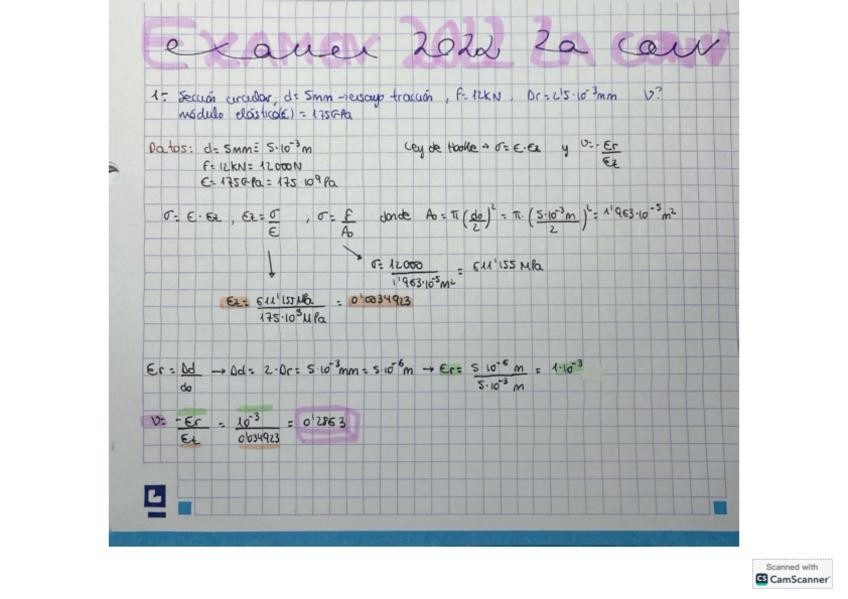 Examen 2022 2a conv
1- Sección circular, d= 5mm → ensayo tracción, F= 12KN, Dr= 2'5·10⁻³mm V?
módulo elástico(E) = 175GPa
Datos: d= 5mm ≡ 5·10⁻³m Ley de Hooke → σ= E·Ez y V= -Er/Ez
F= 12KN= 12000N
E= 175GPa = 175 10⁹Pa
σ= E·Ez, Ez= σ/E, σ= F/A₀ donde A₀ = π(do/2)² = π·(5·10⁻³m/2)² = 1'963·10⁻⁵m²
σ= 12000/1'963·10⁻⁵m² = 611'155 MPa
Ez= 611'155MPa/175·10³MPa = 0'0034923
Er = Dd/do → Dd= 2·Dr= 5·10⁻³mm= 5·10⁻⁶m → Er= 5 10⁻⁶ m/5·10⁻³ m = 1·10⁻³
V= -Er/Ez = 10⁻³/0'034923 = 0'2863
Scanned with
CS CamScanner